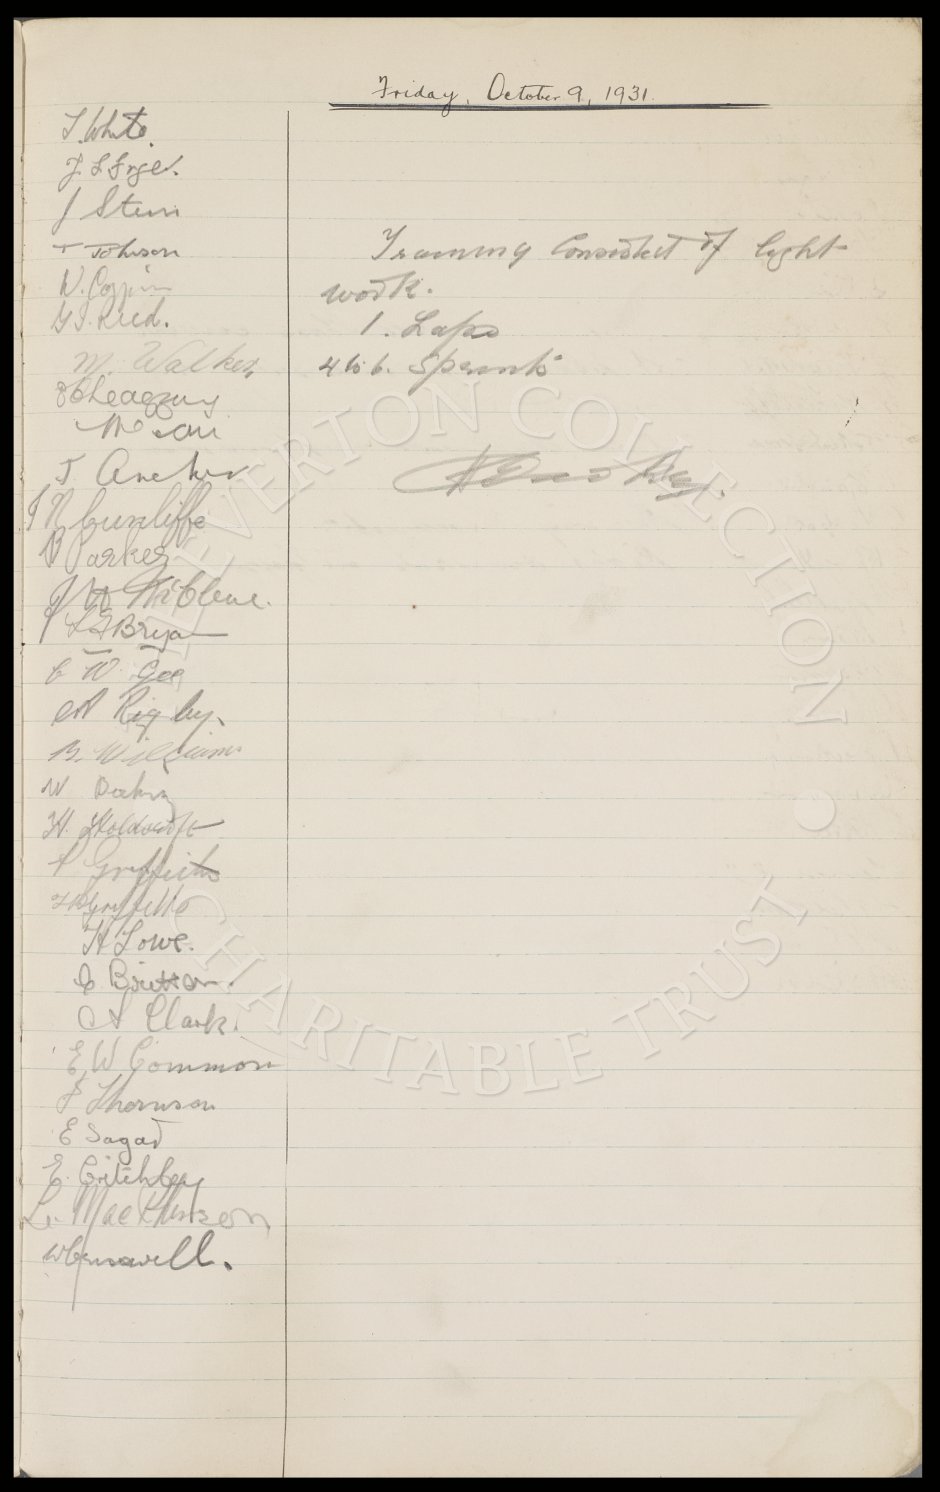 Friday, October 9, 1931.
T. White.
J
J Stein
T Johnson
G. J. Reed.
M. Walker
Training Consisted of light
work.
1. Laps
4 to 6. Sprints
McLean
J. Archer
J N Cunliffe
Parker
L F Bryan
C W Gee
A Rigby.
B. Williams
W
H. Holdcroft
P Griffiths
Griffiths
H Lowe.
C Britton.
A Clark.
E W Common
J Thomson
E Sagar
E. Critchley
Macpherson
W Gosnell.
EVERTON COLLECTION
CHARITABLE TRUST